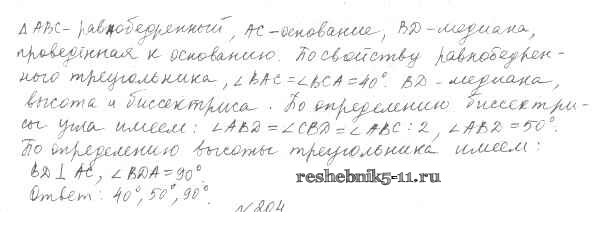 △ABC - равнобедренный, AC - основание, BD - медиана,
проведённая к основанию. По свойству равнобедрен-
ного треугольника, ∠BAC = ∠BCA = 40°. BD - медиана,
высота и биссектриса. По определению биссектри-
сы угла имеем: ∠ABD = ∠CBD = ∠ABC : 2, ∠ABD = 50°.
По определению высоты треугольника имеем:
BD ⊥ AC, ∠BDA = 90°.
reshebnik5-11.ru
Ответ: 40°, 50°, 90°.
№204